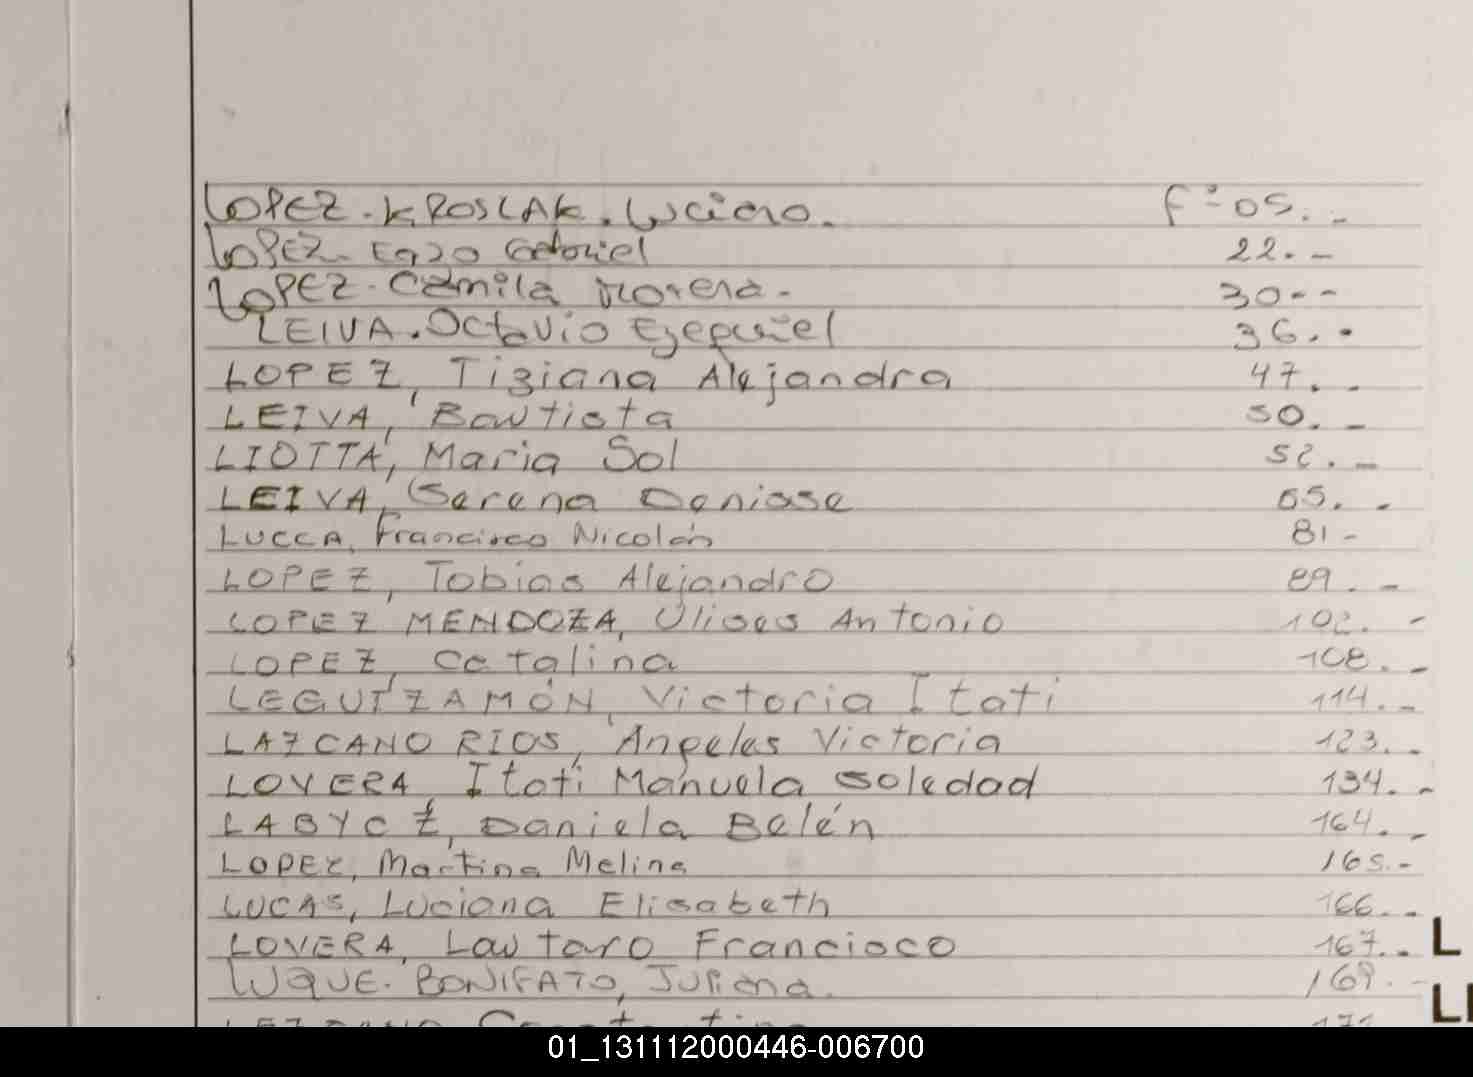 LOPEZ. KROSLAK. Luciano. Fº 05. -
LOPEZ - Enzo Gabriel 22. -
LOPEZ. Camila Morena. - 30 - -
LEIVA. Octavio Ezequiel 36. -
LOPEZ, Tiziana Alejandra 47. -
LEIVA, Bautista 50. -
LIOTTA, Maria Sol 52. -
LEIVA, Serena Denisse 65. -
LUCCA, Francisco Nicolás 81 -
LOPEZ, Tobias Alejandro 89. -
LOPEZ MENDOZA, Ulises Antonio 102. -
LOPEZ, Catalina 108. -
LEGUIZAMÓN, Victoria Itati 114. -
LAZCANO RIOS, Angeles Victoria 123. -
LOVERA, Itatí Manuela Soledad 134. -
LABYCZ, Daniela Belén 164. -
LOPEZ, Martina Melina 165. -
LUCAS, Luciana Elisabeth 166. -
LOVERA, Lautaro Francisco 167. - L
LUQUE. BONIFATO, Juliana. 169. -
171
01_131112000446-006700